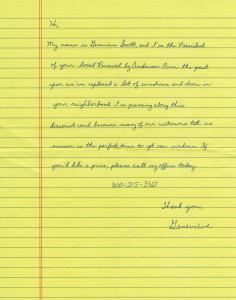 Hi,
My name is Genevieve Scott, and I'm the President
of your local Renewal by Andersen. Over the past
year we've replaced a lot of windows and doors in
your neighborhood. I'm passing along this
discount card because many of our customers tell us
summer is the perfect time to get new windows. If
you'd like a price, please call my office today.
800-215-3367
Thank you,
Genevieve